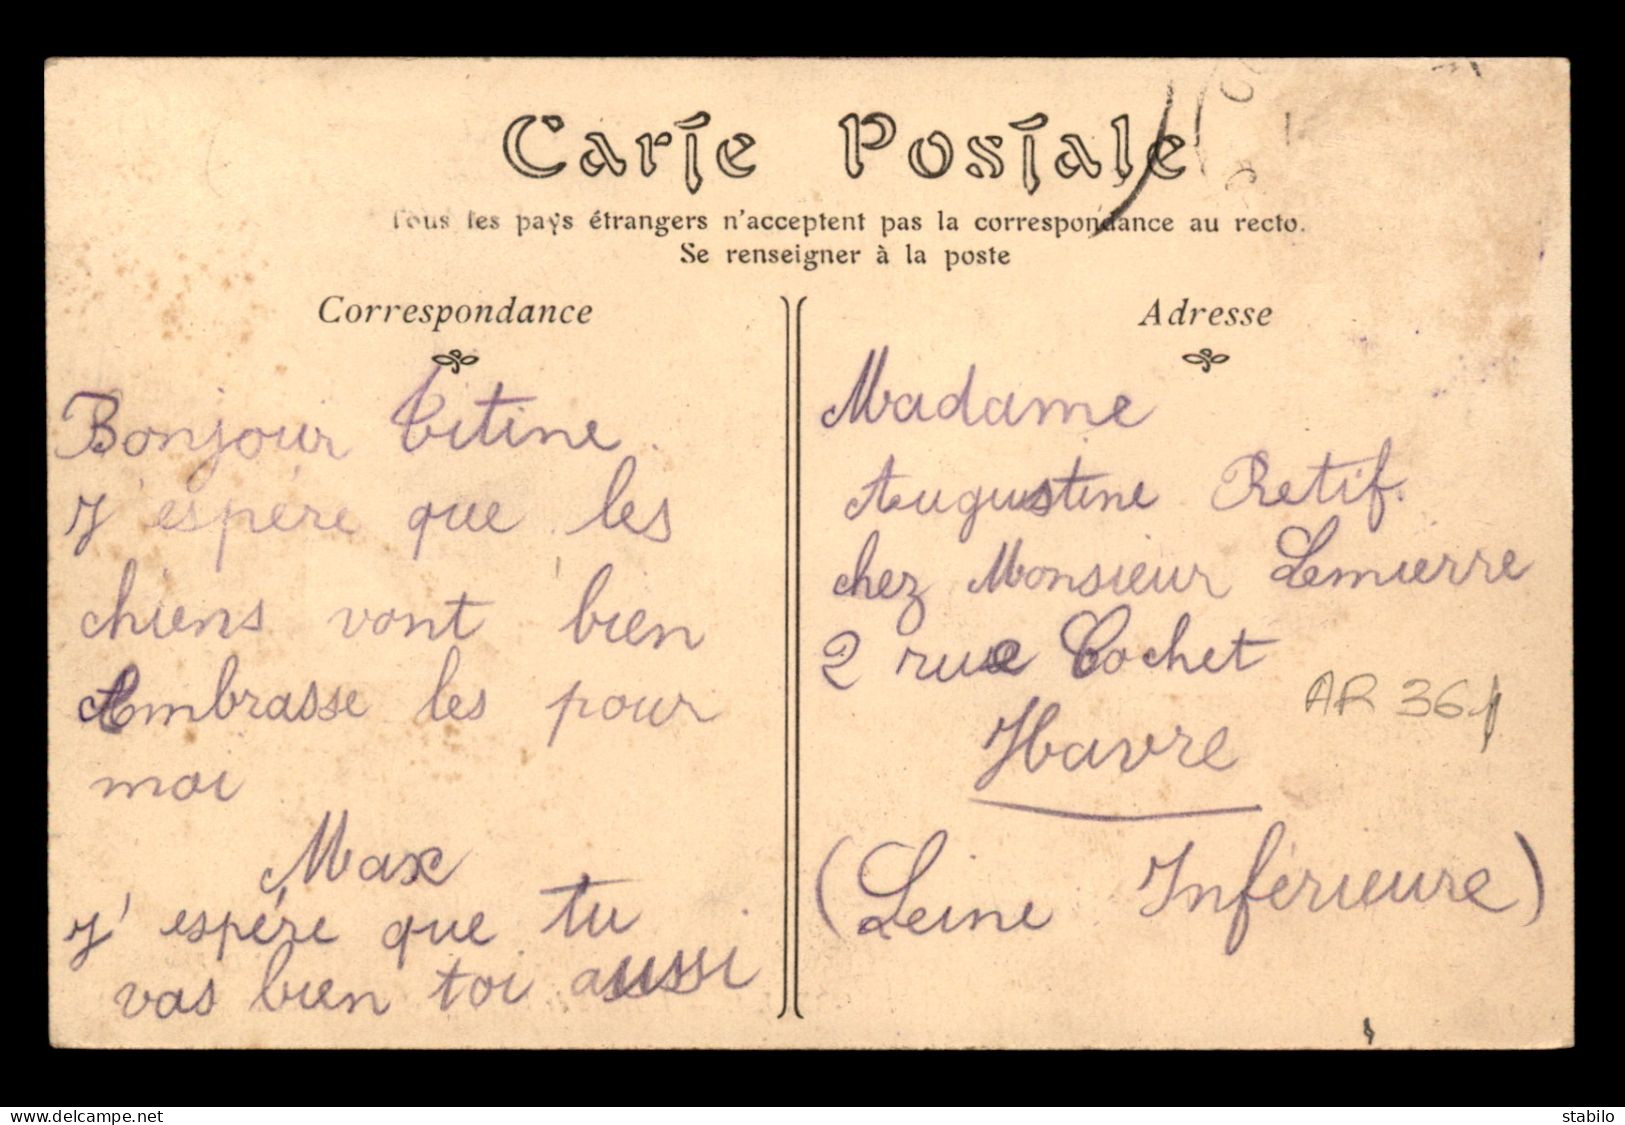 Carte Postale
Tous les pays étrangers n'acceptent pas la correspondance au recto.
Se renseigner à la poste
Correspondance
Bonjour Titine.
J'espére que les
chiens vont bien
Embrasse les pour
moi
Max
J'espére que tu
vas bien toi aussi
Adresse
Madame
Augustine Retif.
chez Monsieur Lemierre
2 rue Cochet
Havre
(Seine Inférieure)
AR 361
delcampe.net
stabilo